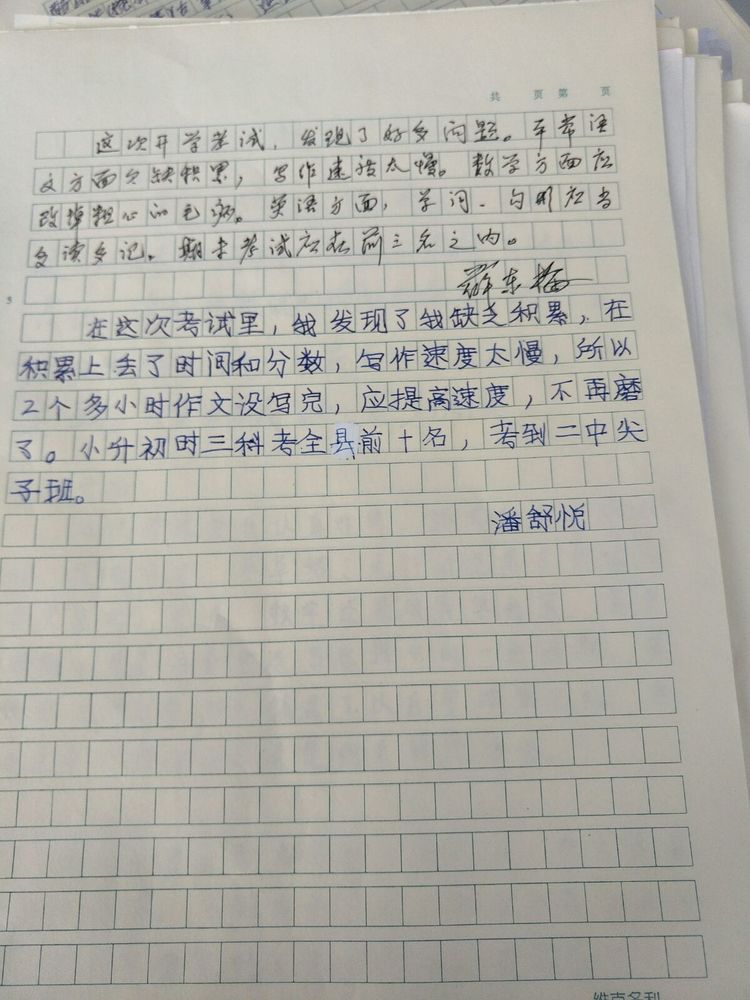 共 页 第 页
这次开学考试，发现了好多问题。平常语
文方面欠缺积累，写作速度太慢。数学方面应
改掉粗心的毛病。英语方面，单词、句形应当
多读多记。期末考试应在前三名之内。
薛东梅
在这次考试里，我发现了我缺乏积累，在
积累上丢了时间和分数，写作速度太慢，所以
2个多小时作文没写完，应提高速度，不再磨
了。小升初时三科考全县前十名，考到二中尖
子班。
潘舒悦